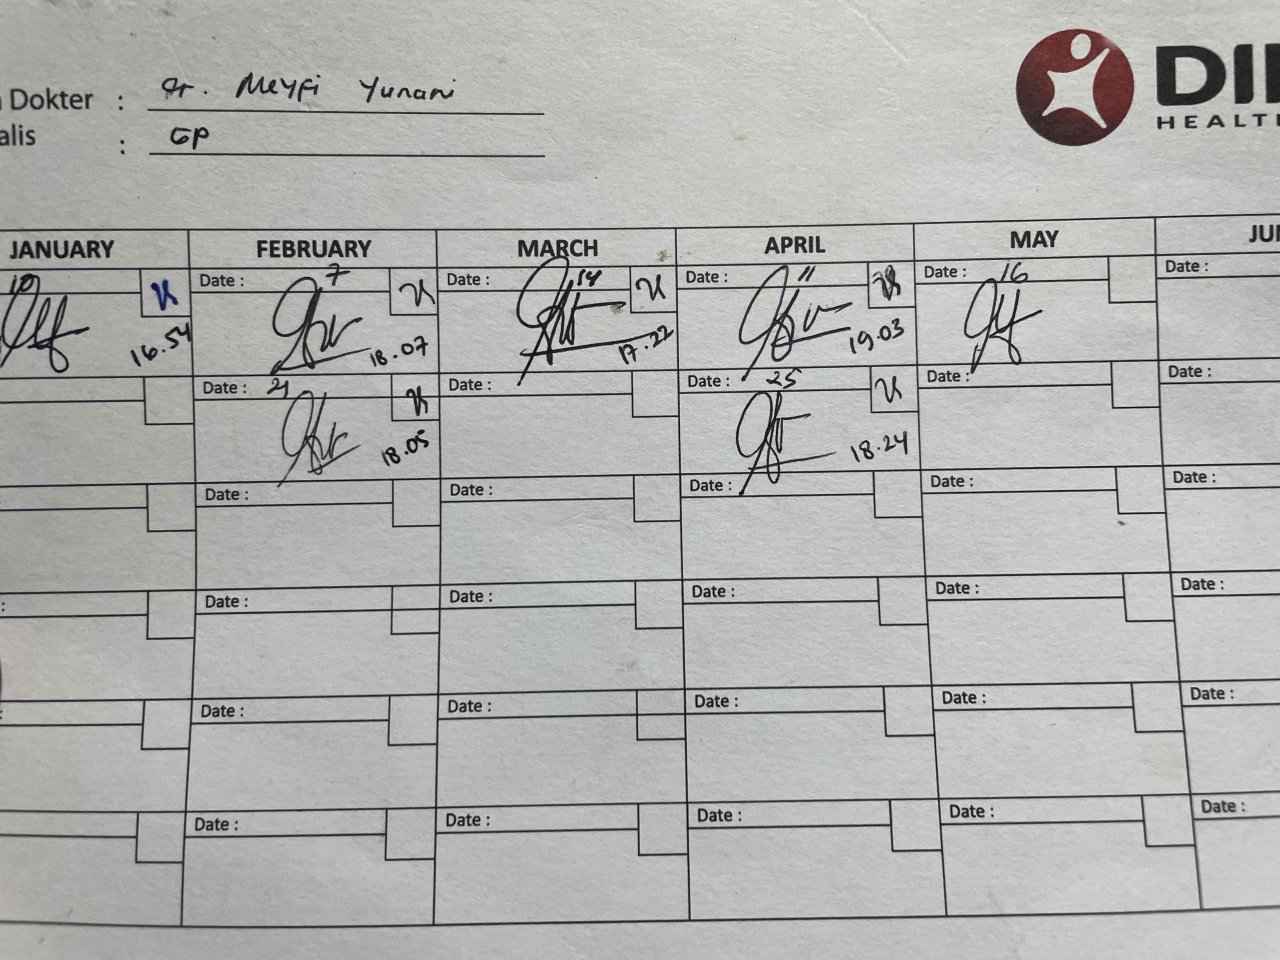 Dokter : dr. Meyfi Yunani
alis : GP
DI
HEALT
JANUARY FEBRUARY MARCH APRIL MAY JU
10 Date : 7 Date : 14 Date : 11 Date : 16 Date :
16.54 18.07 17.22 19.03
Date : 21 Date : Date : 25 Date : Date :
18.05 18.24
Date : Date : Date : Date : Date :
: Date : Date : Date : Date : Date :
: Date : Date : Date : Date : Date :
Date : Date : Date : Date : Date :